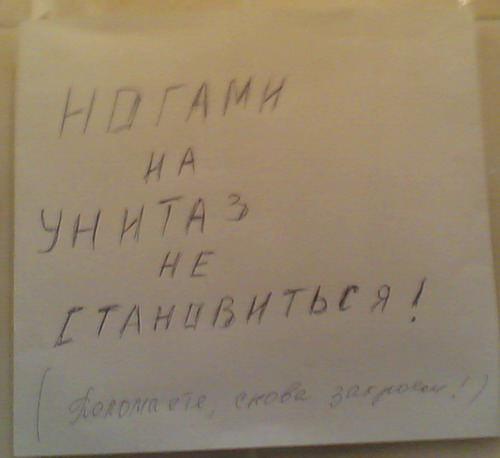 НОГАМИ
НА
УНИТАЗ
НЕ
СТАНОВИТЬСЯ!
(Поломаете, снова закроем!)